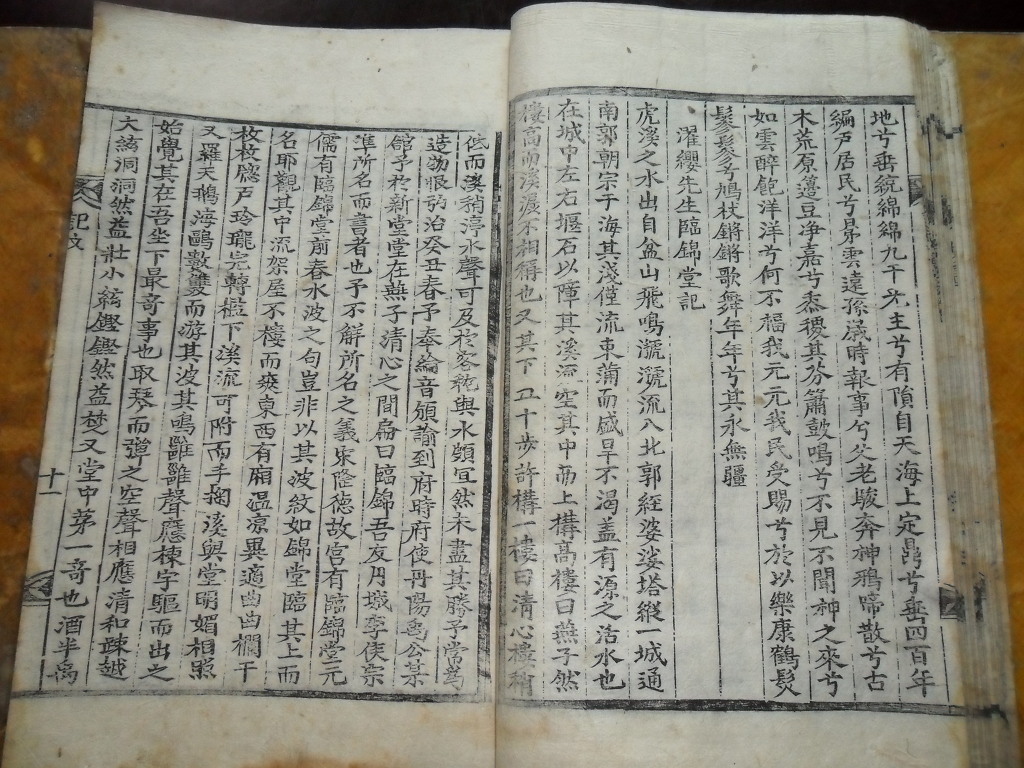 地兮垂統綿綿九干先主兮有隕自天海上定鼎兮垂四百年
編戶居民兮昴雲遠孫歲時報事兮父老駿奔神鴉啼散兮古
木荒原籩豆淨嘉兮黍稷其芬簫鼓鳴兮不見不聞神之來兮
如雲醉飽洋洋兮何不福我元元我民受賜兮於以樂康鶴髮
鬖鬖兮鳩杖鏘鏘歌舞年年兮其永無疆
濯纓先生臨錦堂記
虎溪之水出自盆山飛鳴瀧瀧流入北郭經婆娑塔縱一城通
南郭朝宗于海其淺僅流束蒲而盛旱不渴盖有源之活水也
在城中左右堰石以障其溪流空其中而上構高樓曰燕子然
樓高而溪湲不相稱也又其下五十步許構一樓曰清心樓稍
低而溪稍渟水聲可及於客枕與水頗宜然未盡其勝予嘗爲
造物恨弘治癸丑春予奉綸音頒諭到府時府使丹陽禹公某
館予於新堂堂在燕子清心之間扁曰臨錦吾友月城李侯宗
準所名而書者也予不解所名之義宋隆德故宮有臨錦堂元
儒有臨錦堂前春水波之句豈非以其波紋如錦堂臨其上而
名耶觀其中流架屋不樓而爽東西有廂溫凉異適曲曲欄干
枚枚牕戶玲瓏宛轉檻下溪流可附而手掬溪與堂明媚相照
又羅天鵝海鷗數雙而游其波其鳴雝雝聲應棟宇驅而出之
始覺其在吾坐下最奇事也取琴而彈之空聲相應清和疎越
大絃洞洞然益壯小絃鏗鏗然益焚又堂中第一奇也酒半禹
記文
十一